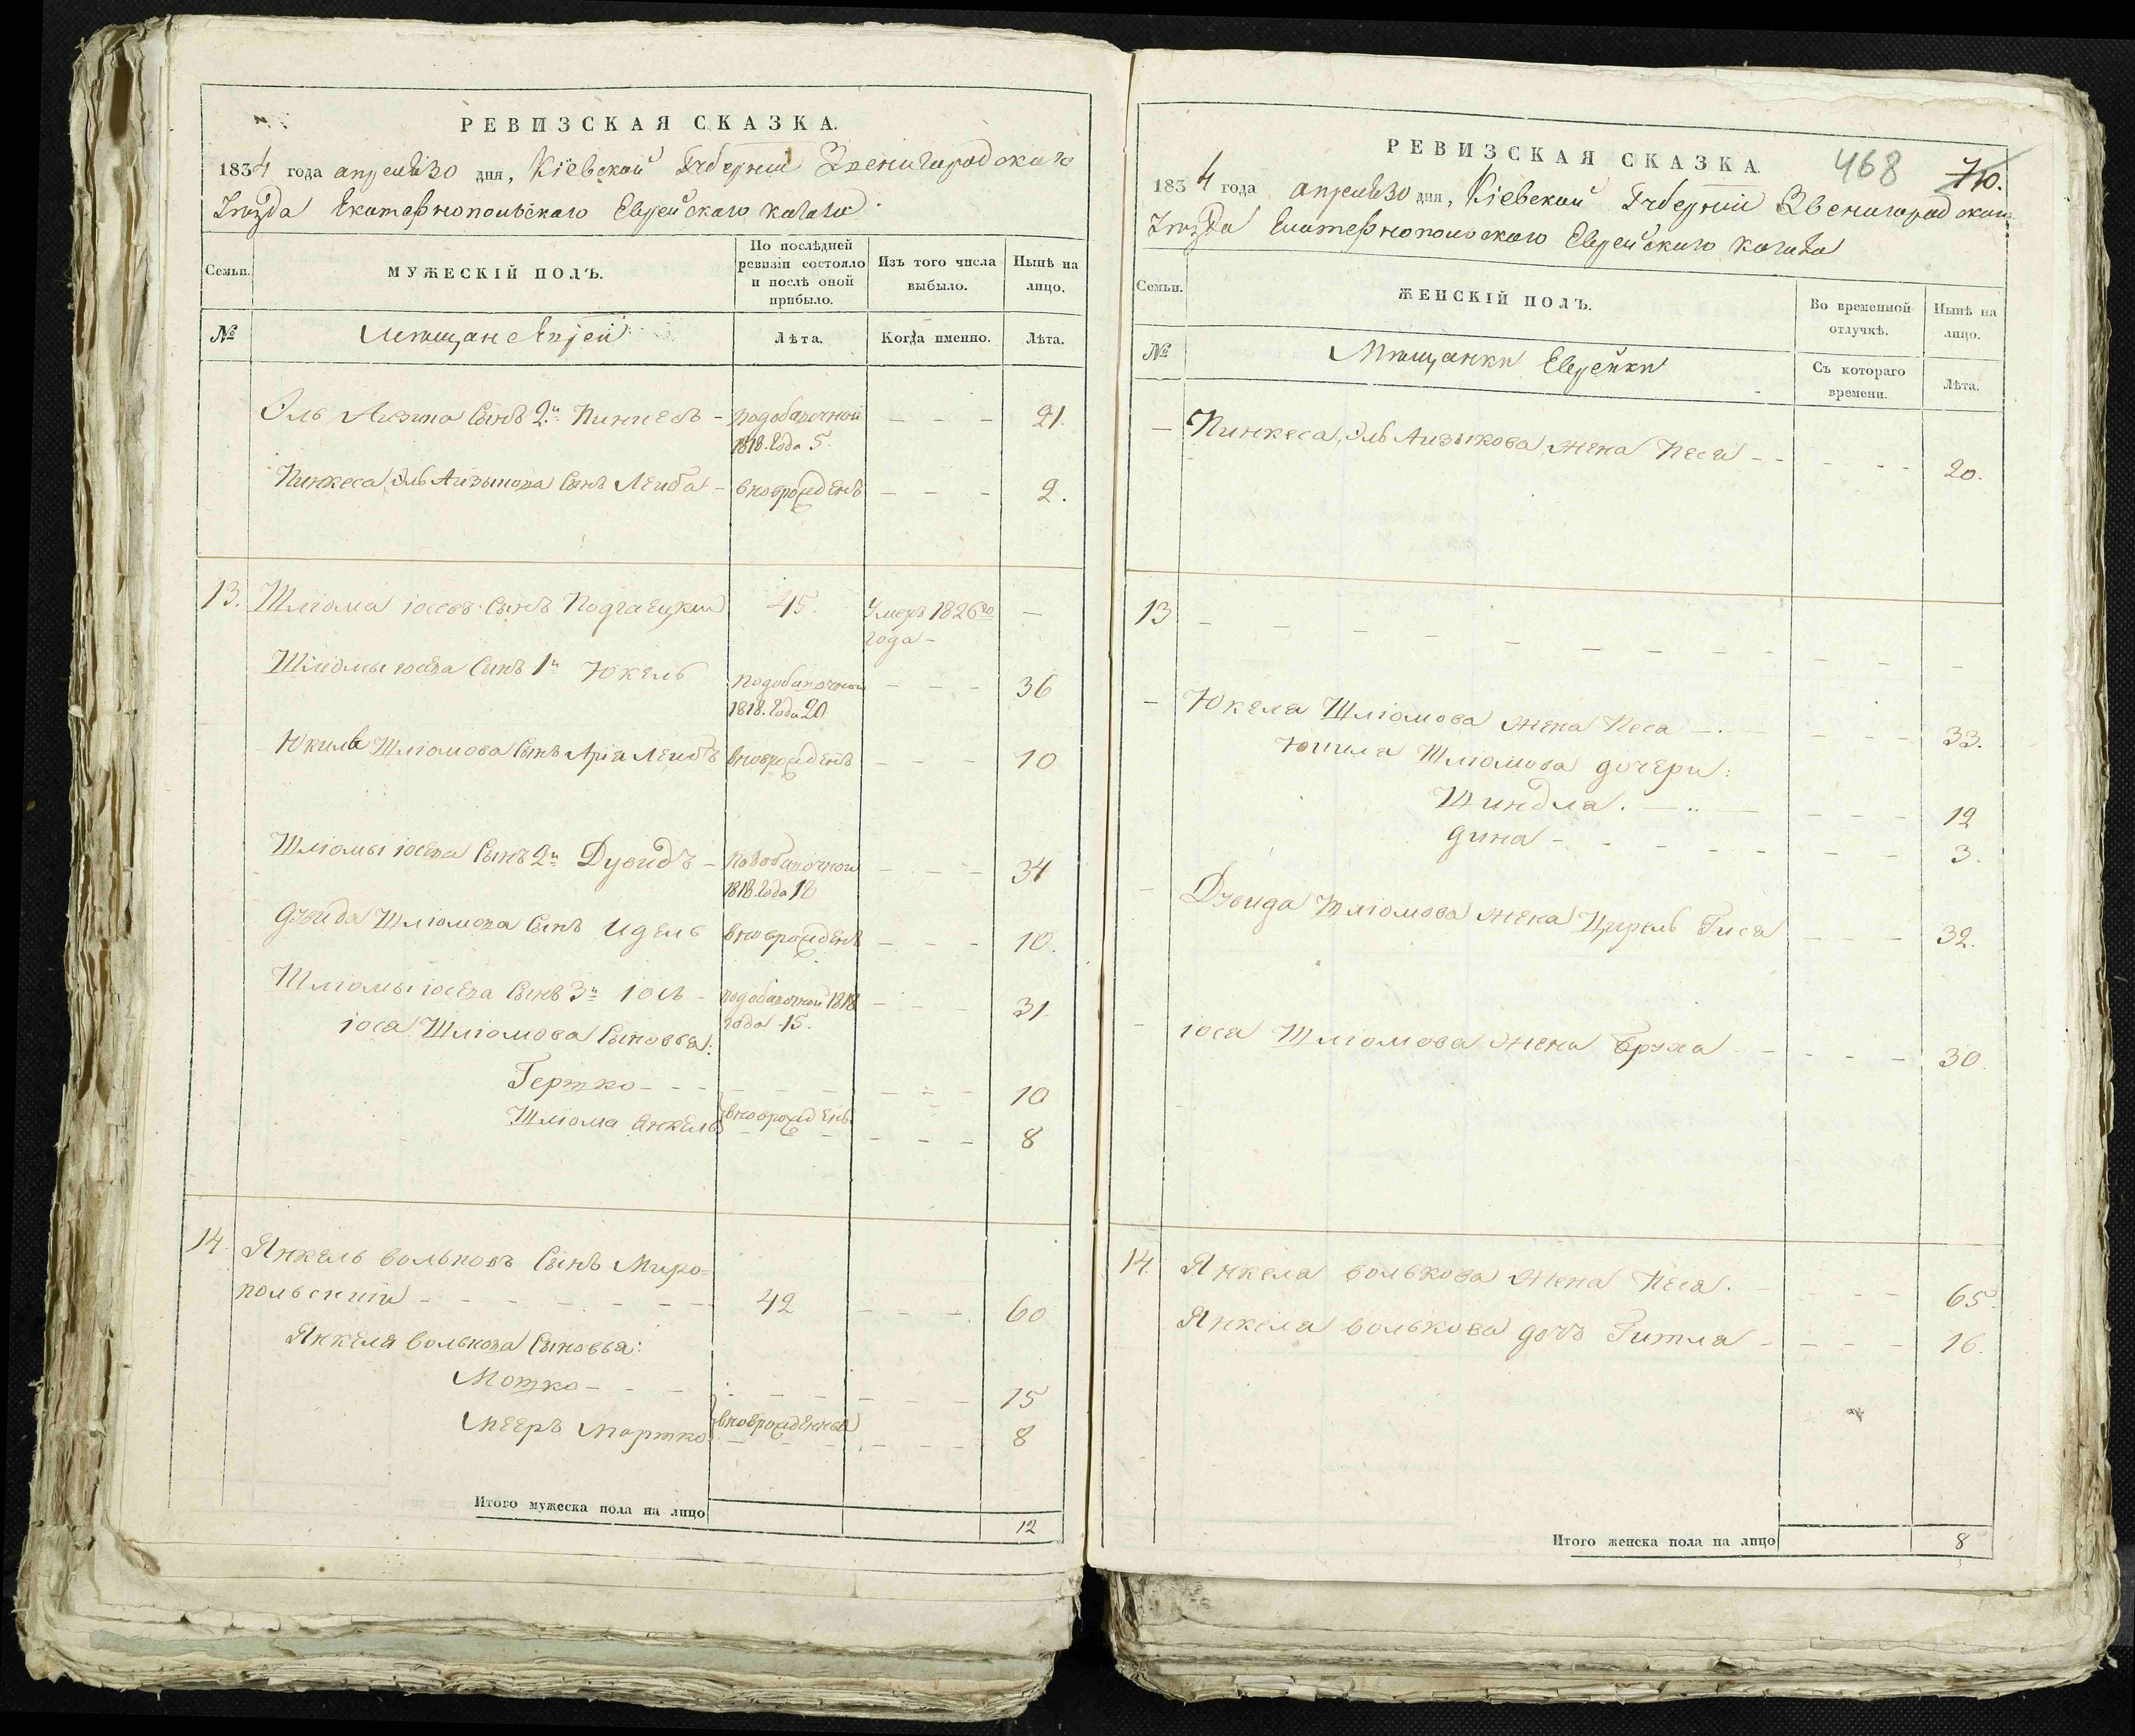 РЕВИЗСКАЯ СКАЗКА.
1834 года апреля 30 дня, Кіевской Губерніи Звенигородскаго
Уѣзда Екатеринопольскаго Еврейскаго кагала
Семьи.
МУЖЕСКІЙ ПОЛЪ.
По послѣдней ревизіи состояло и послѣ оной прибыло.
Изъ того числа выбыло.
Нынѣ на лицо.
№
Мѣщане Евреи
Лѣта.
Когда именно.
Лѣта.
Эль Аизика Сынъ 2й Пинкесъ - 21.
1818. Года 5.
Пинкеса Эль Аизикова Сынъ Лейба - вноврожденъ - - - 2.
13. Шліома іосевъ Сынъ Подгаецкий 45. Умеръ 1826го года - -
Шліомы іосева Сынъ 1й Юкель - - - 36
1818. Года 20
Юкиля Шліомова Сынъ Аріа Лейбъ вноврожденъ - - - 10
Шліомы іосева Сынъ 2й Дувидъ - - - - 34
1818. Года 18
Дувида Шліомова Сынъ Идель вноврожденъ - - - 10.
Шліомы іосева Сынъ 3й іось - 1818 - - 31
года 15.
іося Шліомова Сыновья:
Гершко - - - - - - 10
Шліома Анкель вноврожденъ - - - 8
14. Янкель Вольковъ Сынъ Миро-
польскій - - - - - - - 42 - - - 60
Янкеля Волькова Сыновья:
Мошко - - - - - - 15
Мееръ Мортко вноврожденныя - - - 8
Итого мужеска пола на лицо 12
468 70.
РЕВИЗСКАЯ СКАЗКА.
1834 года апреля 30 дня, Кіевской Губерніи Звенигородскаго
Уѣзда Екатеринопольскаго Еврейскаго кагала
Семьи.
ЖЕНСКІЙ ПОЛЪ.
Во временной отлучкѣ.
Нынѣ на лицо.
№
Мѣщанки Еврейки
Съ котораго времени.
Лѣта.
- Пинкеса, Эль Аизыкова жена Песя - - - - - 20.
13 - - - - - - - - -
- Юкеля Шліомова жена Песа - - - - 33.
Юкиля Шліомова дочери:
Шиндля. - - - - 12
Дина - - - - - - - 3.
- Дувида Шліомова жена Цирель Гися - - - 32.
- іося Шліомова жена Бруха - - - - - 30
14. Янкеля Волькова жена Песя. - - - - 65.
Янкеля Волькова дочь Гитля - - - - 16.
Итого женска пола на лицо 8